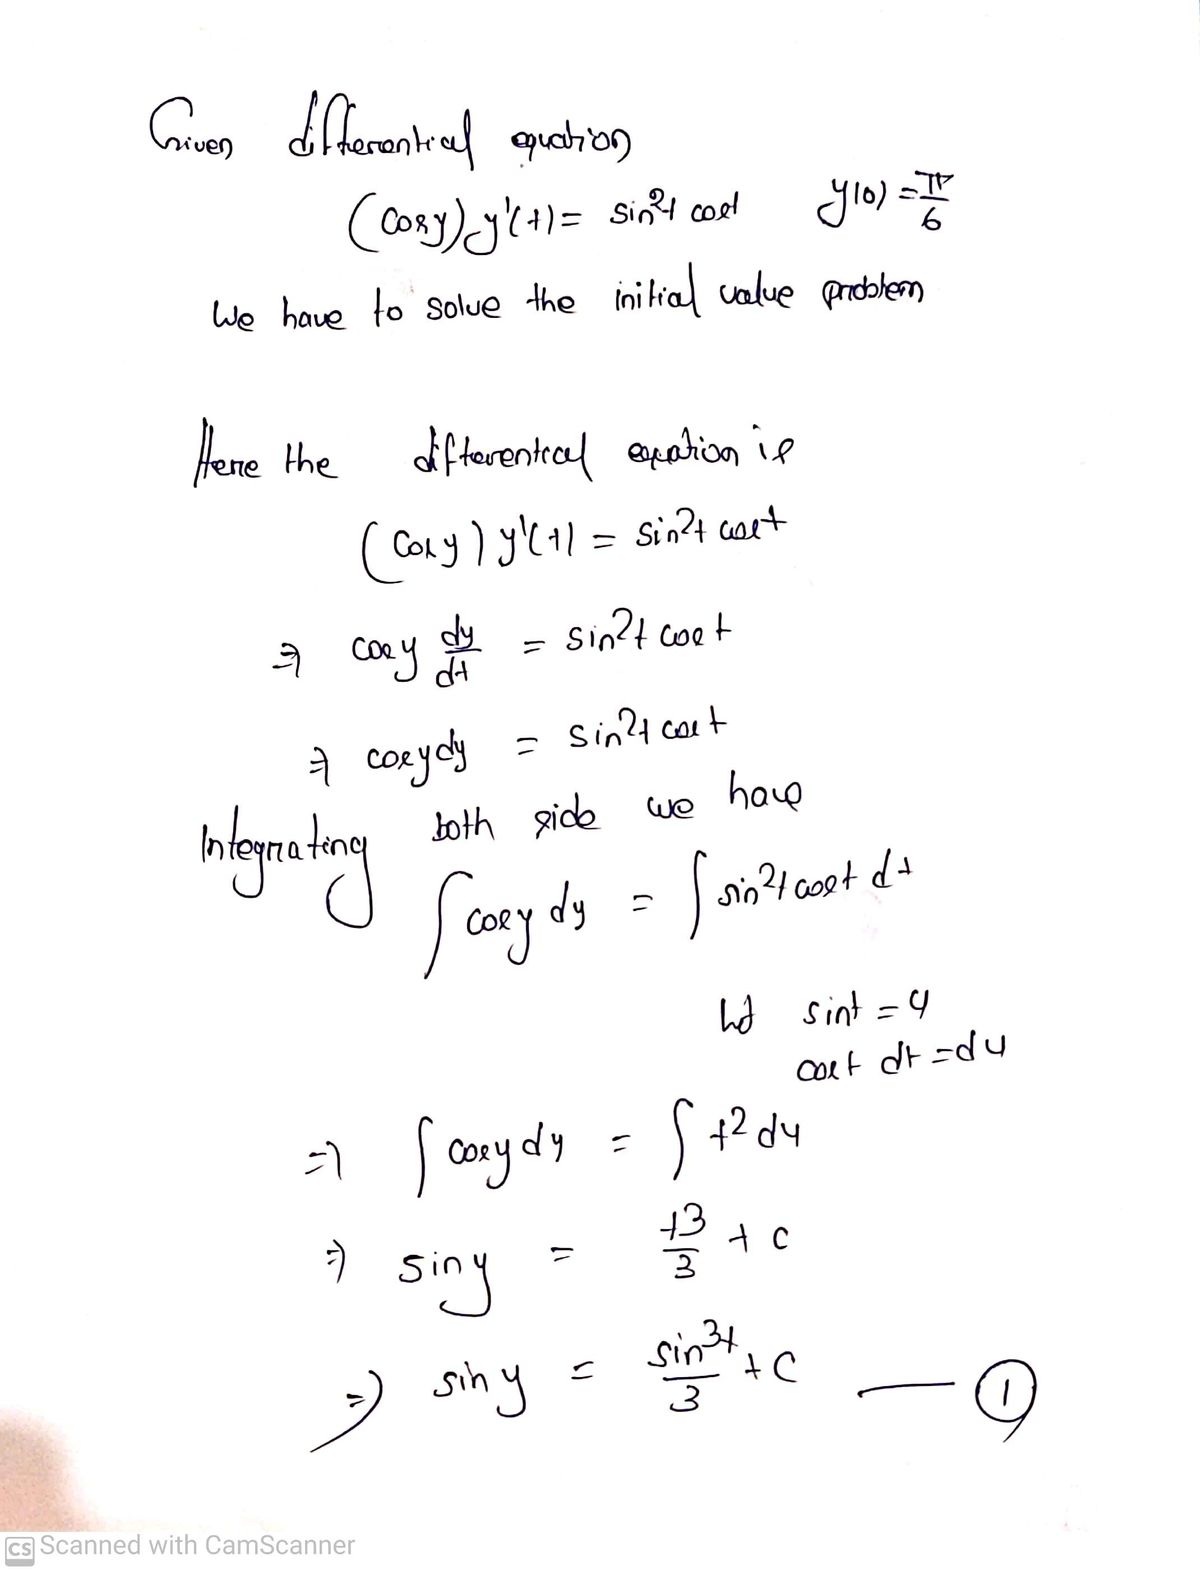 Given differential equation
(cosy) y'(t) = sin²t cost    y(0) = π/6
We have to solve the initial value problem
Here the differential equation is
(cosy) y'(t) = sin²t cost
⇒ cosy dy/dt = sin²t cost
⇒ cosydy = sin²t cost
Integrating both side we have
∫ cosy dy = ∫ sin²t cost dt
let sint = u
cost dt = du
⇒ ∫ cosy dy = ∫ t² du
⇒ siny = t³/3 + c
⇒ siny = sin³t/3 + c — ①
CS Scanned with CamScanner